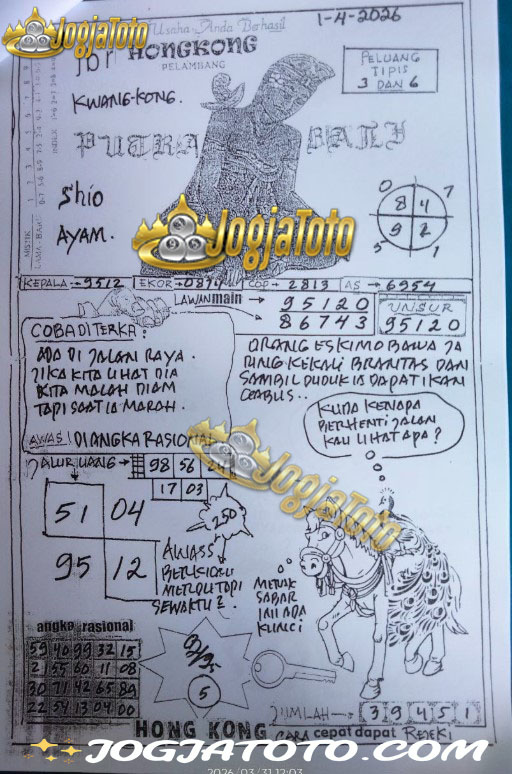 JOGJATOTO
Usaha Anda Berhasil
1-4-2026
HONGKONG
PELAMBANG
KWANG-KONG.
PELUANG
TIPIS
3 DAN 6
PUTRA BALI
Shio
AYAM.
0 7
8 4
9 2
5 1
JOGJATOTO
KEPALA→9512 EKOR→0874 COP→2813 AS→6954
LAWAN main → 95120
→ 86743
UNSUR
95120
COBA DITERKA:
ADA DI JALAN RAYA.
JIKA KITA LIHAT DIA
KITA MALAH DIAM
TAPI SAAT IA MARAH.
AWAS! DI ANGKA RASIONAL
ORANG ESKIMO BAWA JA
RING KEKALI BRANTAS DAN
SAMBIL DUDUK IA DAPAT IKAN
KUDA KENAPA
BERHENTI JALAN
KAU LIHAT APA?
JOGJATOTO
JALUR UANG → 98 56
17 03
51 04
95 12
250
AWASS
SEWAKTU2.
MERAK
SABAR
INI ADA
KUNCI
angka rasional
59 40 99 32 15
21 55 60 11 08
30 71 42 65 89
22 54 13 04 00
5
JUMLAH → 3 9 4 5 1
HONG KONG
CARA cepat dapat REJEKI
JOGJATOTO.COM
2026/03/31 12:03